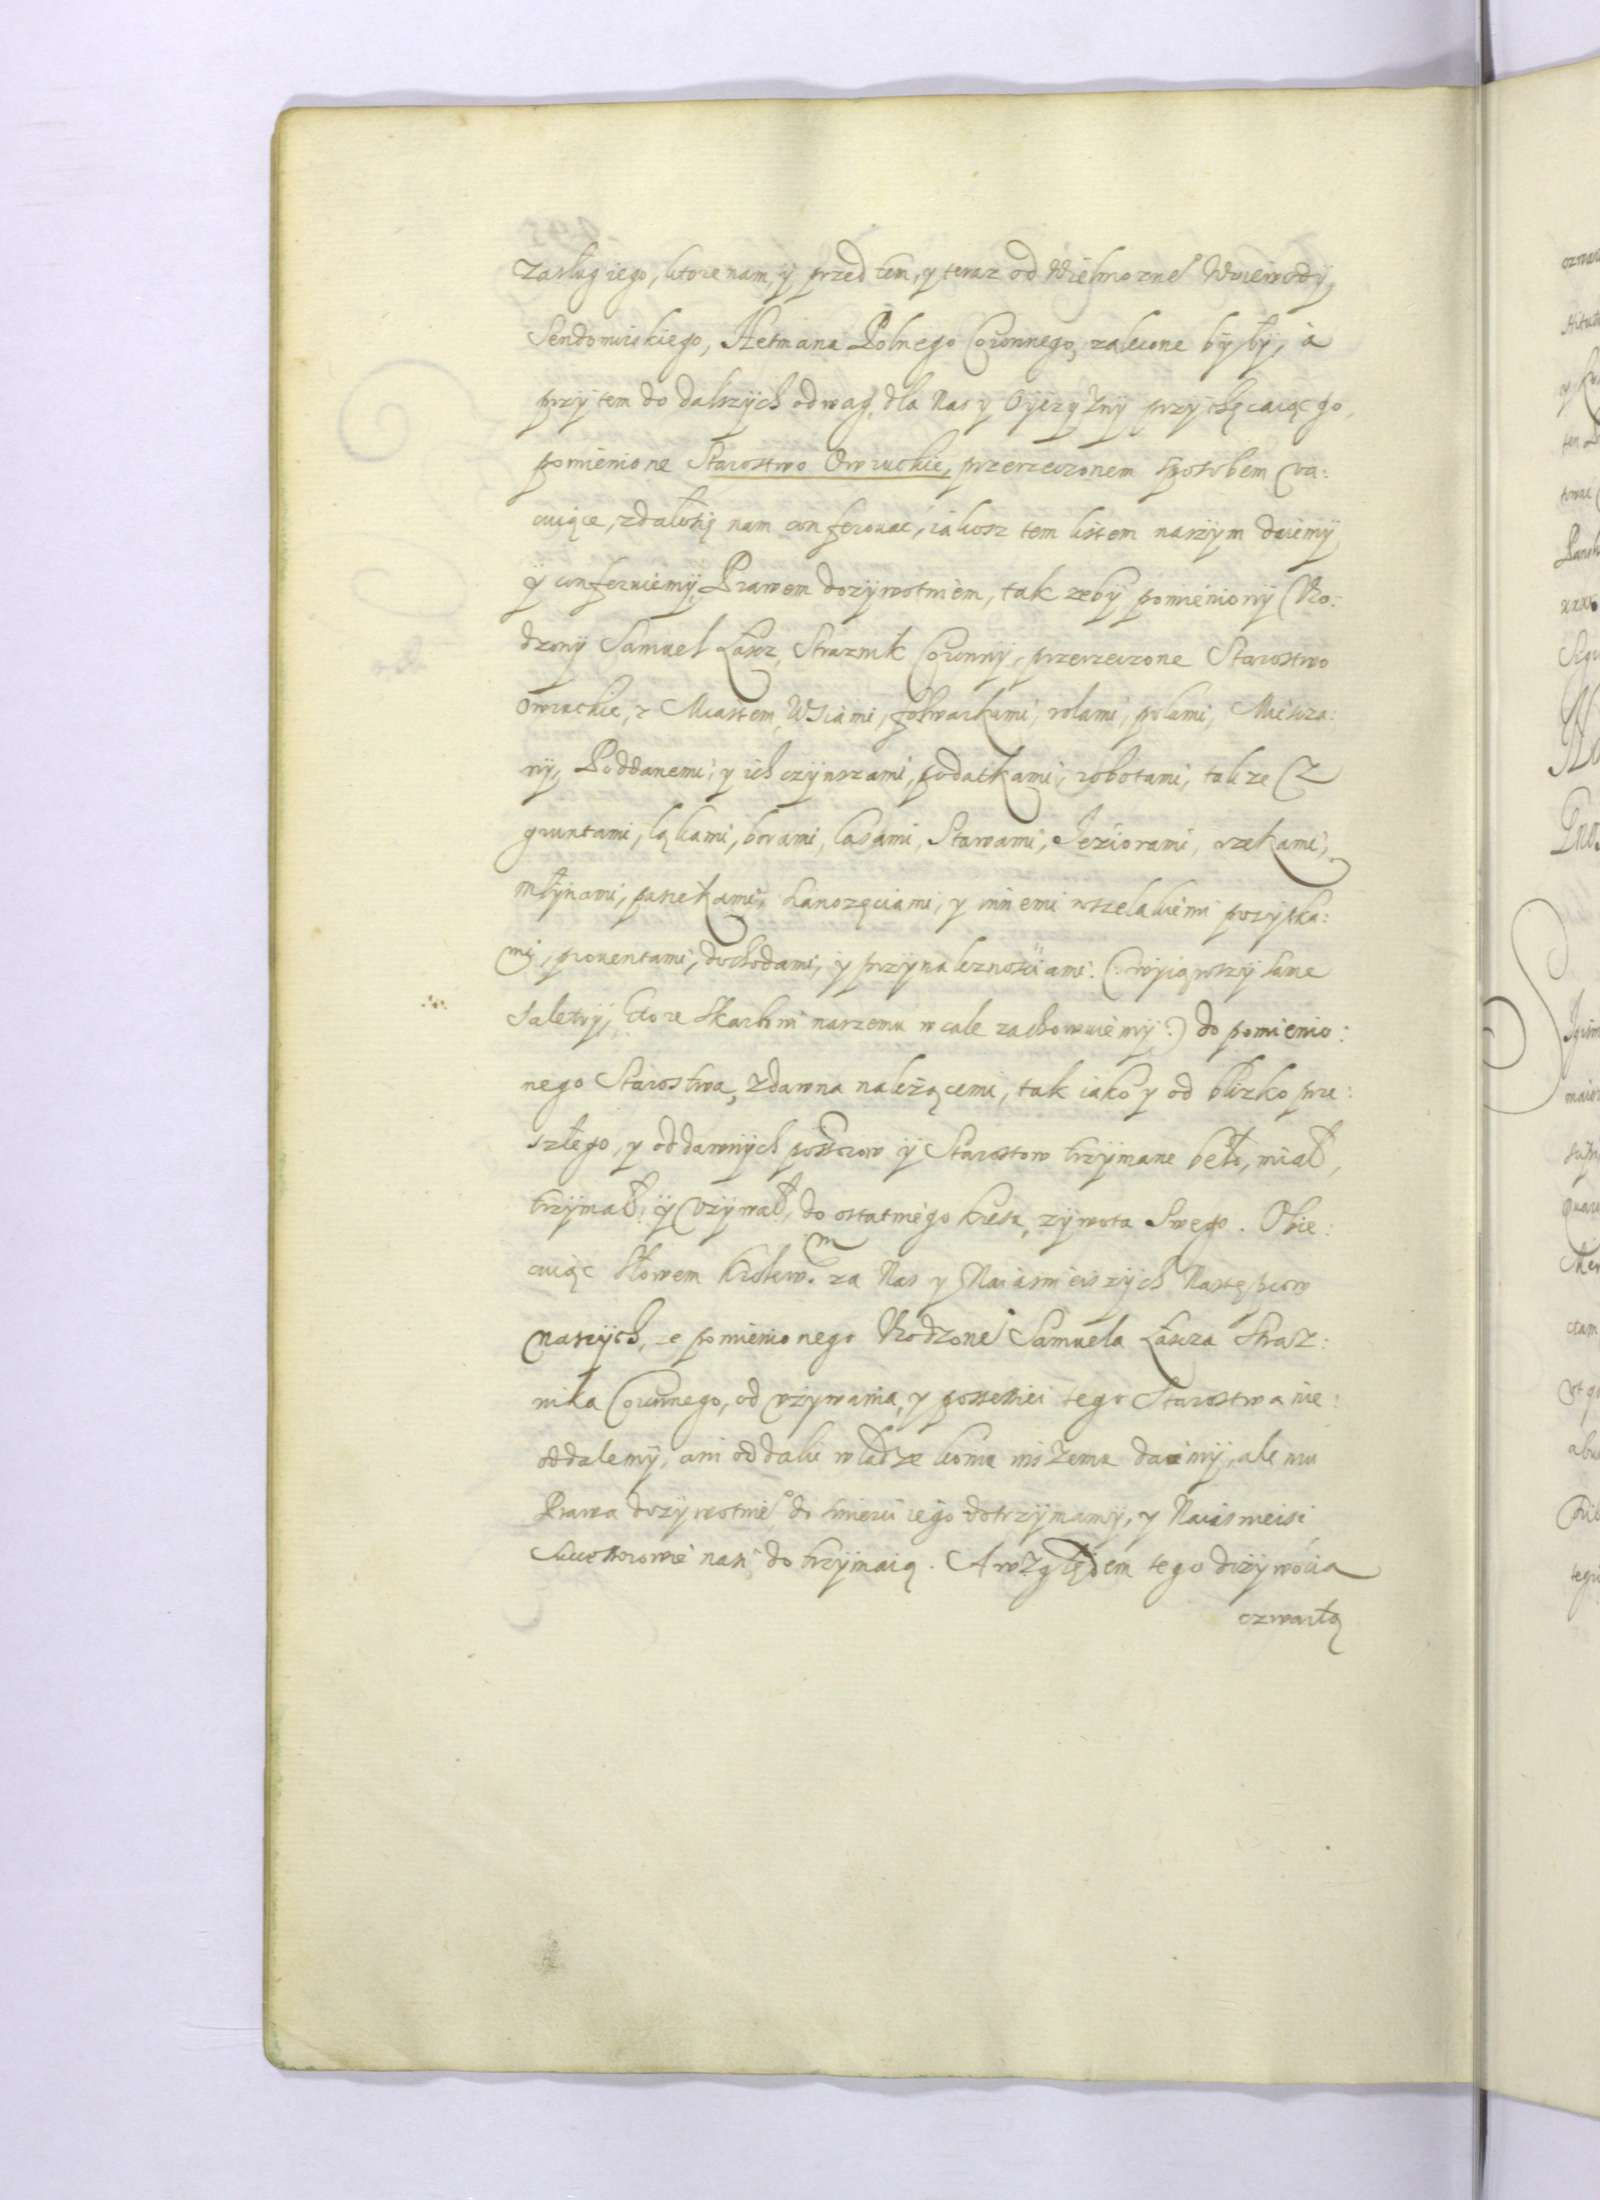 zasług iego, ktore nam, y przed tem, y teraz od Wielmozne° Woiewody,
Sendomirskiego, Hetmana Polnego Coronnego, zalecone były, a
przytem do dalszych odwag, dla Nas y Oyczyzny przychęcaiąc go,
pomienione Starostwo Owruckie, przerzeczonem sposobem va:
cuiące, zdało się nam conferować, iakosz tem listem naszym daiemy
y conferuiemy, Prawem dozywotniem, tak zeby pomieniony Vro:
dzony Samuel Łascz, Straznik Coronny, przerzeczone Starostwo
Owruckie, z Miastem, Wsiami, folwarkami, rolami, polami, Miescza:
ny, Poddanemi, y ich czynszami, podatkami, robotami, takze z
gruntami, łąkami, borami, lasami, Stawami, Jeziorami, rzekami,
młynami, pasiekami, y innemi wszelakiemi pozytka:
mi, prouentami, dochodami, y przynaleznosciami. (wyiąwszy same
saletry, ktore Skarbowi naszemu wcale zachowuiemy) do pomienio:
nego Starostwa, zdawna należącemi, tak iako y od blizko prze:
szłego, y od dawnych possorow y Starostow trzymane beło, miał,
trzymał, y Vzywał, do ostatniego kresu, zywota Swego. Obie:
cuiąc Słowem Krolew.m za Nas y Naiasnieiszych Następcow
naszych, ze pomienionego Vrodzone° Samuela Łascza Straz:
nika Coronnego, od vżywania, y possessiei tego Starostwa nie:
oddalemy, ani oddalić władze komu inszemu damy, ale mu
Prawa dozywotnie° do smierci iego dotrzymamy, y Naiasnieisi
Successorowie nasi dotrzymaią. A względem tego dozywocia
czwartą